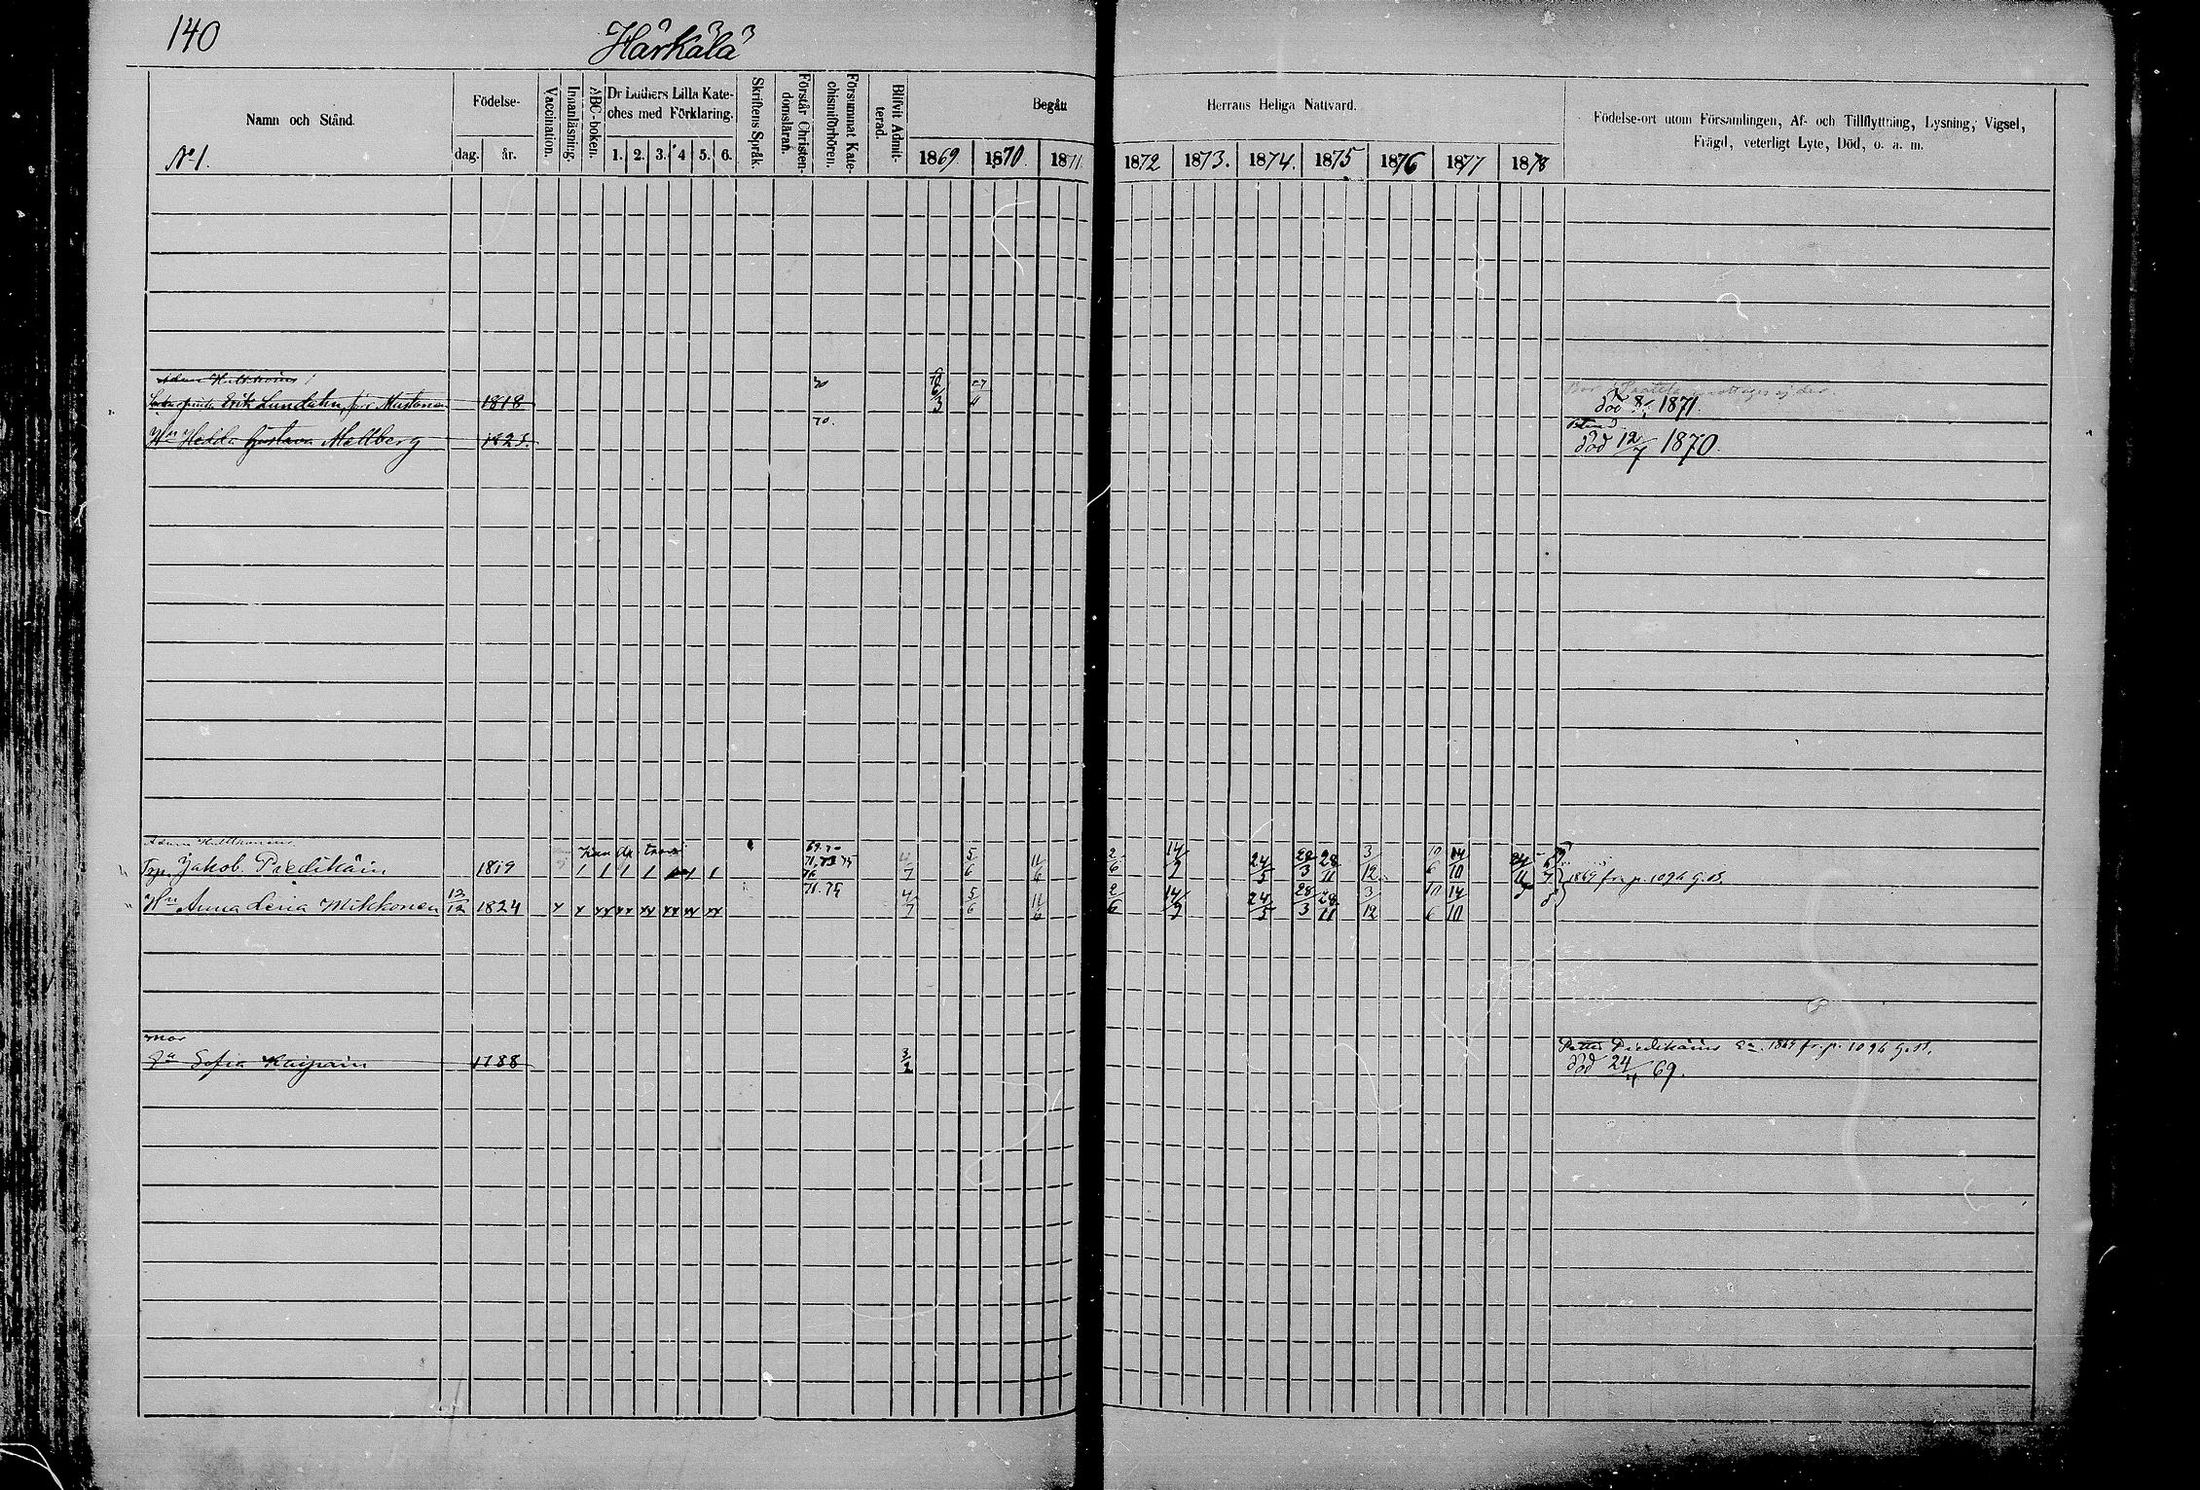 140
Härkälä
Namn och Stånd.
No 1.
Födelse-
dag.
år.
Vaccination.
Innanläsning.
ABC-boken.
Dr Luthers Lilla Kate-
ches med Förklaring.
1. 2. 3. 4 5. 6.
Skriftens Språk.
Förstår Christen-
domsläran.
Försummat Kate-
chismiförhören.
Blifvit Admit-
terad.
Begått Herrans Heliga Nattvard.
1869 1870. 1871 1872 1873. 1874. 1875 1876 1877 1878
Födelse-ort utom Församlingen, Af- och Tillflyttning, Lysning, Vigsel,
Frägd, veterligt Lyte, Död, o. a. m.
Erik Lundahn, 1818 död 8/ 1871.
Hu Hedda Gustava Mellberg 1823. 70. död 12/7 1870.
69.70
Jakob Predikäin 1819 1 1 1 1 1 1 71.73 75 4/7 5/6 11/6 2/6 14/9 24/5 28/3 28/11 3/12 10/6 14/10
76 1869 fr. p. 1094 g. b.
Hu Anna Leria Mikkonen 13/12 1824 71.75 4/7 5/6 11/6 2/6 14/9 24/5 28/3 28/11 3/12 10/6 14/10
mor
Sofia Kaipain 1788 3/2 Predikäins 1869 fr. p. 1094 g. b.
död 24/4 69.